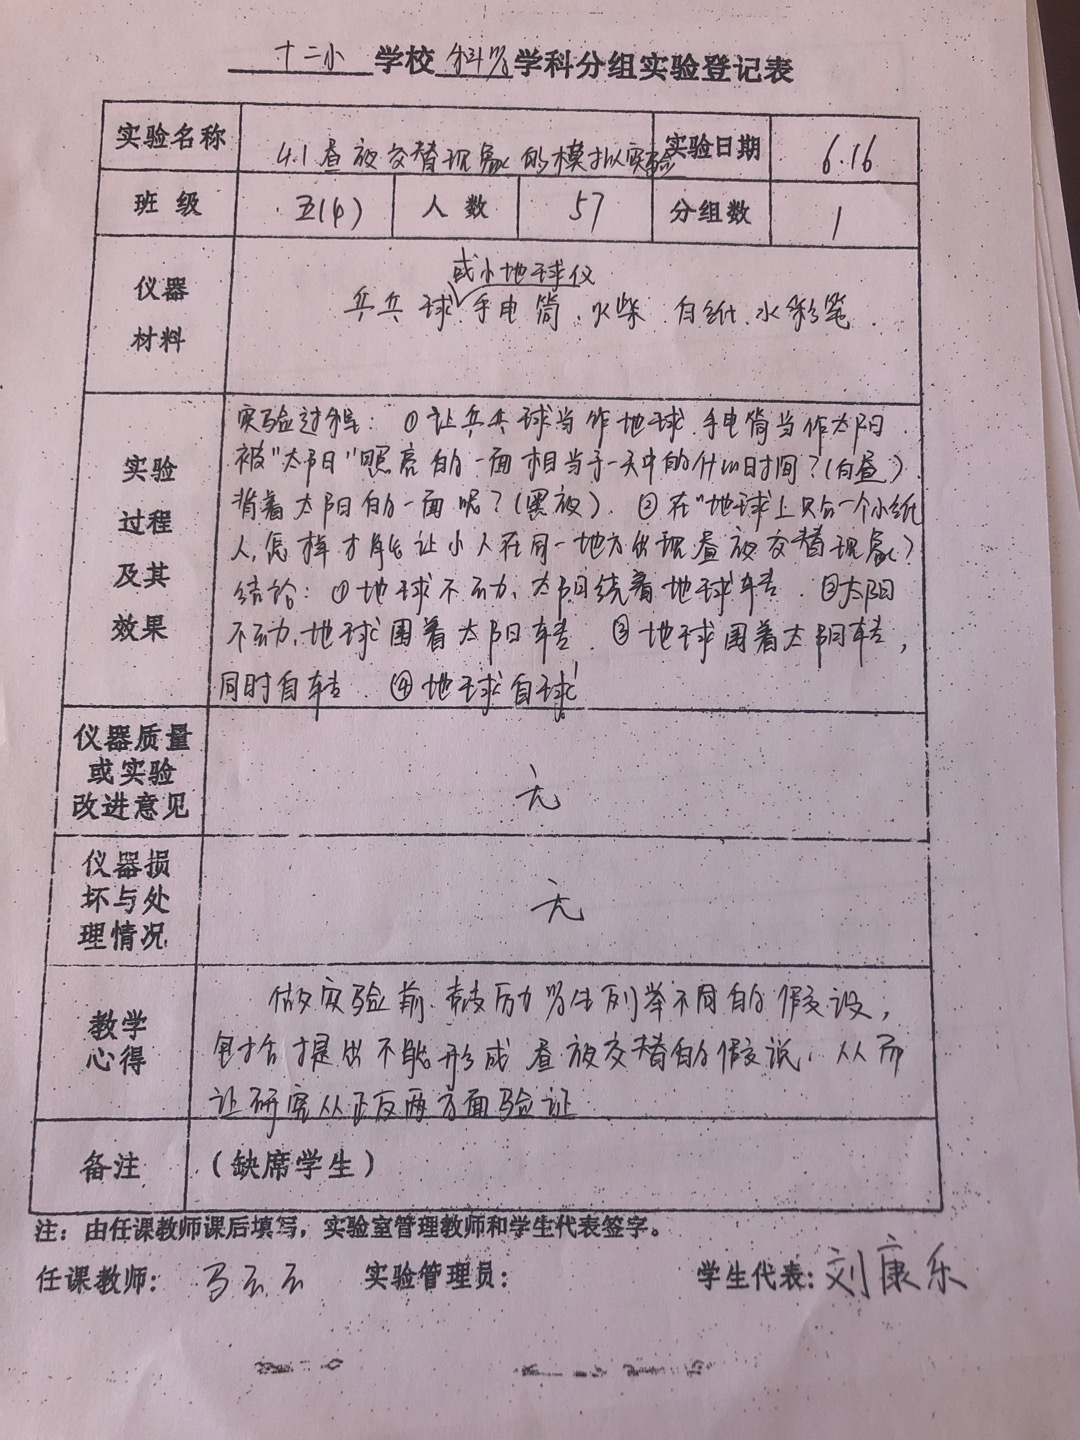 十二小 学校 科学 学科分组实验登记表
实验名称 4.1昼夜交替现象的模拟实验 实验日期 6.16
班 级 五(4) 人 数 57 分组数 1
仪器
材料
或小地球仪
乒乓球 手电筒、火柴、白纸、水彩笔.
实验
过程
及其
效果
实验过程：①让乒乓球当作地球,手电筒当作太阳.
被"太阳"照亮的一面相当于一天中的什么时间?(白昼)
背着太阳的一面呢?(黑夜). ②在"地球"上贴一个小纸
人,怎样才能让小人在同一地方出现昼夜交替现象?
结论：①地球不动,太阳绕着地球转. ②太阳
不动,地球围着太阳转. ③地球围着太阳转,
同时自转. ④地球自球
仪器质量
或实验
改进意见
无
仪器损
坏与处
理情况
无
教学
心得
做实验前,鼓励学生列举不同的假设,
包括提出不能形成昼夜交替的假说,从而
让研究从正反两方面验证
备注 (缺席学生)
注：由任课教师课后填写，实验室管理教师和学生代表签字。
任课教师: 马云云 实验管理员: 学生代表: 刘康乐